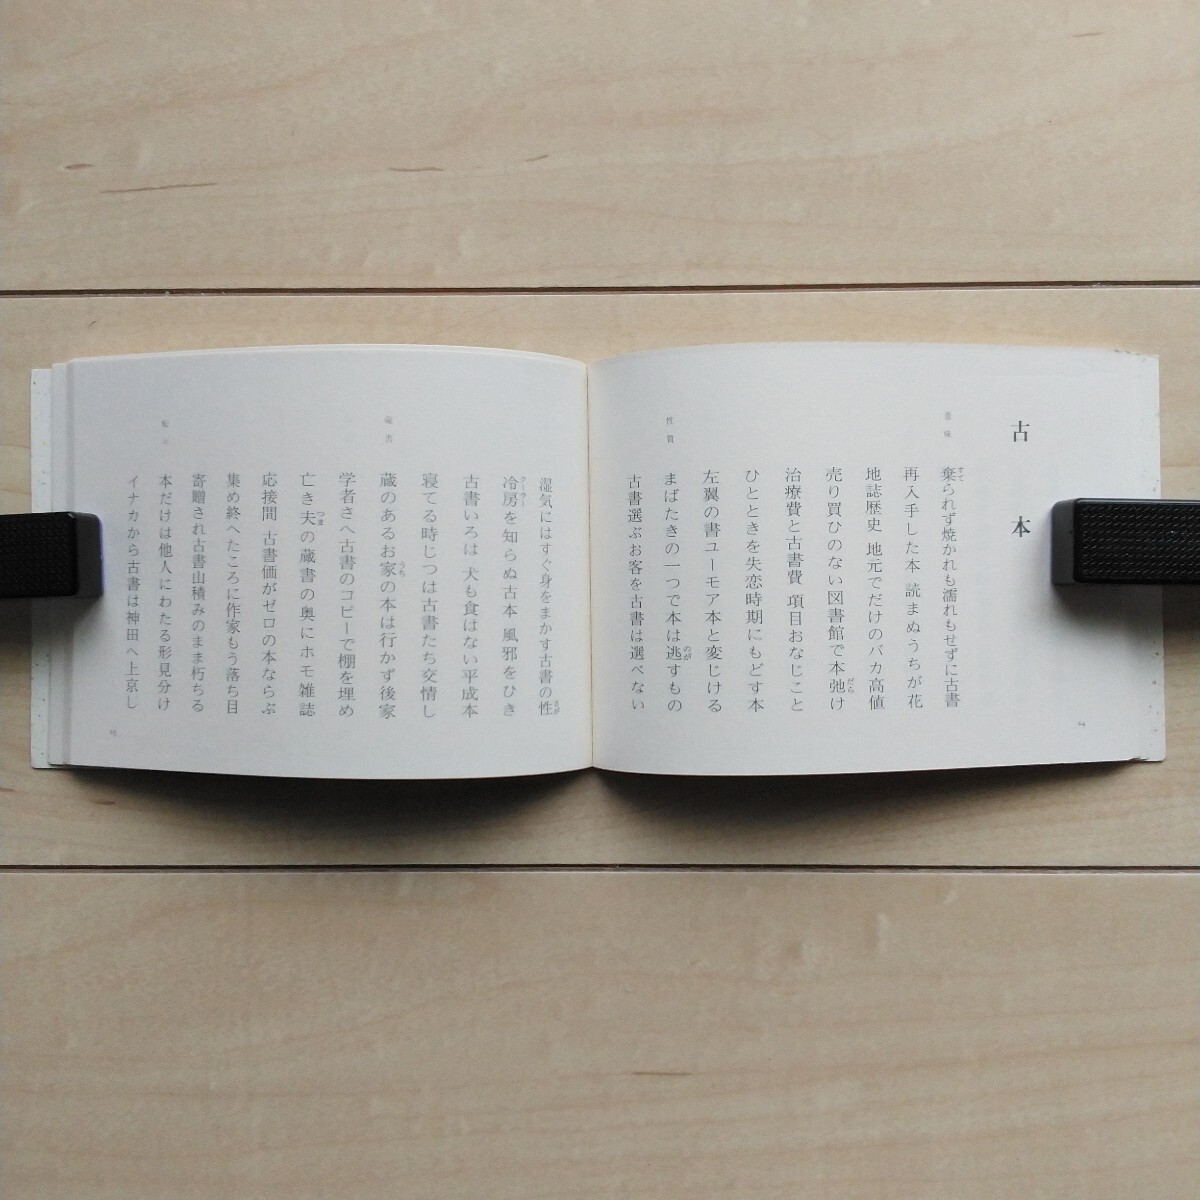 古本
意味
棄られず焼かれも濡れもせずに古書
再入手した本 読まぬうちが花
地誌歴史 地元でだけのバカ高値
売り買ひのない図書館で本弛け
治療費と古書費 項目おなじこと
ひとときを失恋時期にもどす本
左翼の書ユーモア本と変じける
性質
まばたきの一つで本は逃すもの
古書選ぶお客を古書は選べない
湿気にはすぐ身をまかす古書の性
冷房を知らぬ古本 風邪をひき
古書いろは 犬も食はない平成本
寝てる時じつは古書たち交情し
蔵書
蔵のあるお家の本は行かず後家
学者さへ古書のコピーで棚を埋め
亡き夫の蔵書の奥にホモ雑誌
応接間 古書価がゼロの本ならぶ
集め終へたころに作家もう落ち目
寄贈され古書山積みのまま朽ちる
本だけは他人にわたる形見分け
イナカから古書は神田へ上京し